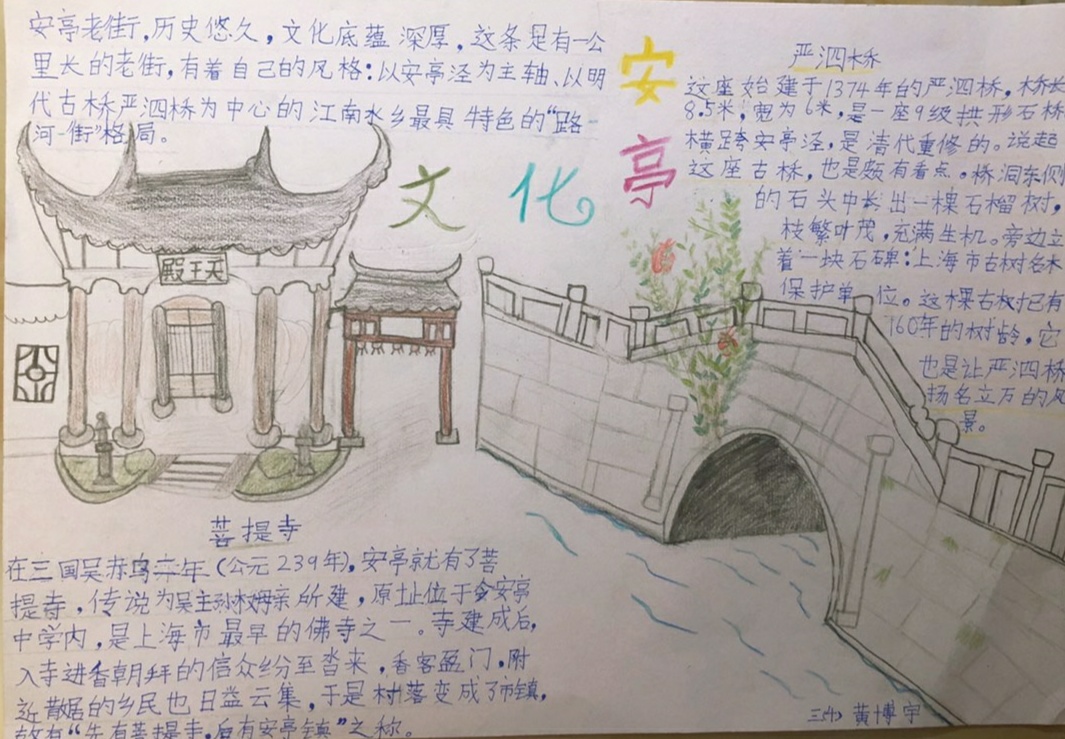 安亭老街,历史悠久,文化底蕴深厚,这条足有一公
里长的老街,有着自己的风格:以安亭泾为主轴、以明
代古桥严泗桥为中心的江南水乡最具特色的“路-
河-街”格局。
安
亭
文 化
严泗桥
这座始建于1374年的严泗桥,桥长
8.5米,宽为6米,是一座9级拱形石桥
横跨安亭泾,是清代重修的。说起
这座古桥,也是颇有看点。桥洞东侧
的石头中长出一棵石榴树,
枝繁叶茂,充满生机。旁边立
着一块石碑:上海市古树名木
保护单位。这棵古树已有
160年的树龄,它
也是让严泗桥
扬名立万的风
景。
殿王天
菩提寺
在三国吴赤乌二年(公元239年),安亭就有了菩
提寺,传说为吴主孙权母亲所建,原址位于安亭
中学内,是上海市最早的佛寺之一。寺建成后,
入寺进香朝拜的信众纷至沓来,香客盈门,附
近散居的乡民也日益云集,于是村落变成了市镇,
故有“先有菩提寺,后有安亭镇”之称。
三(4) 黄博宇